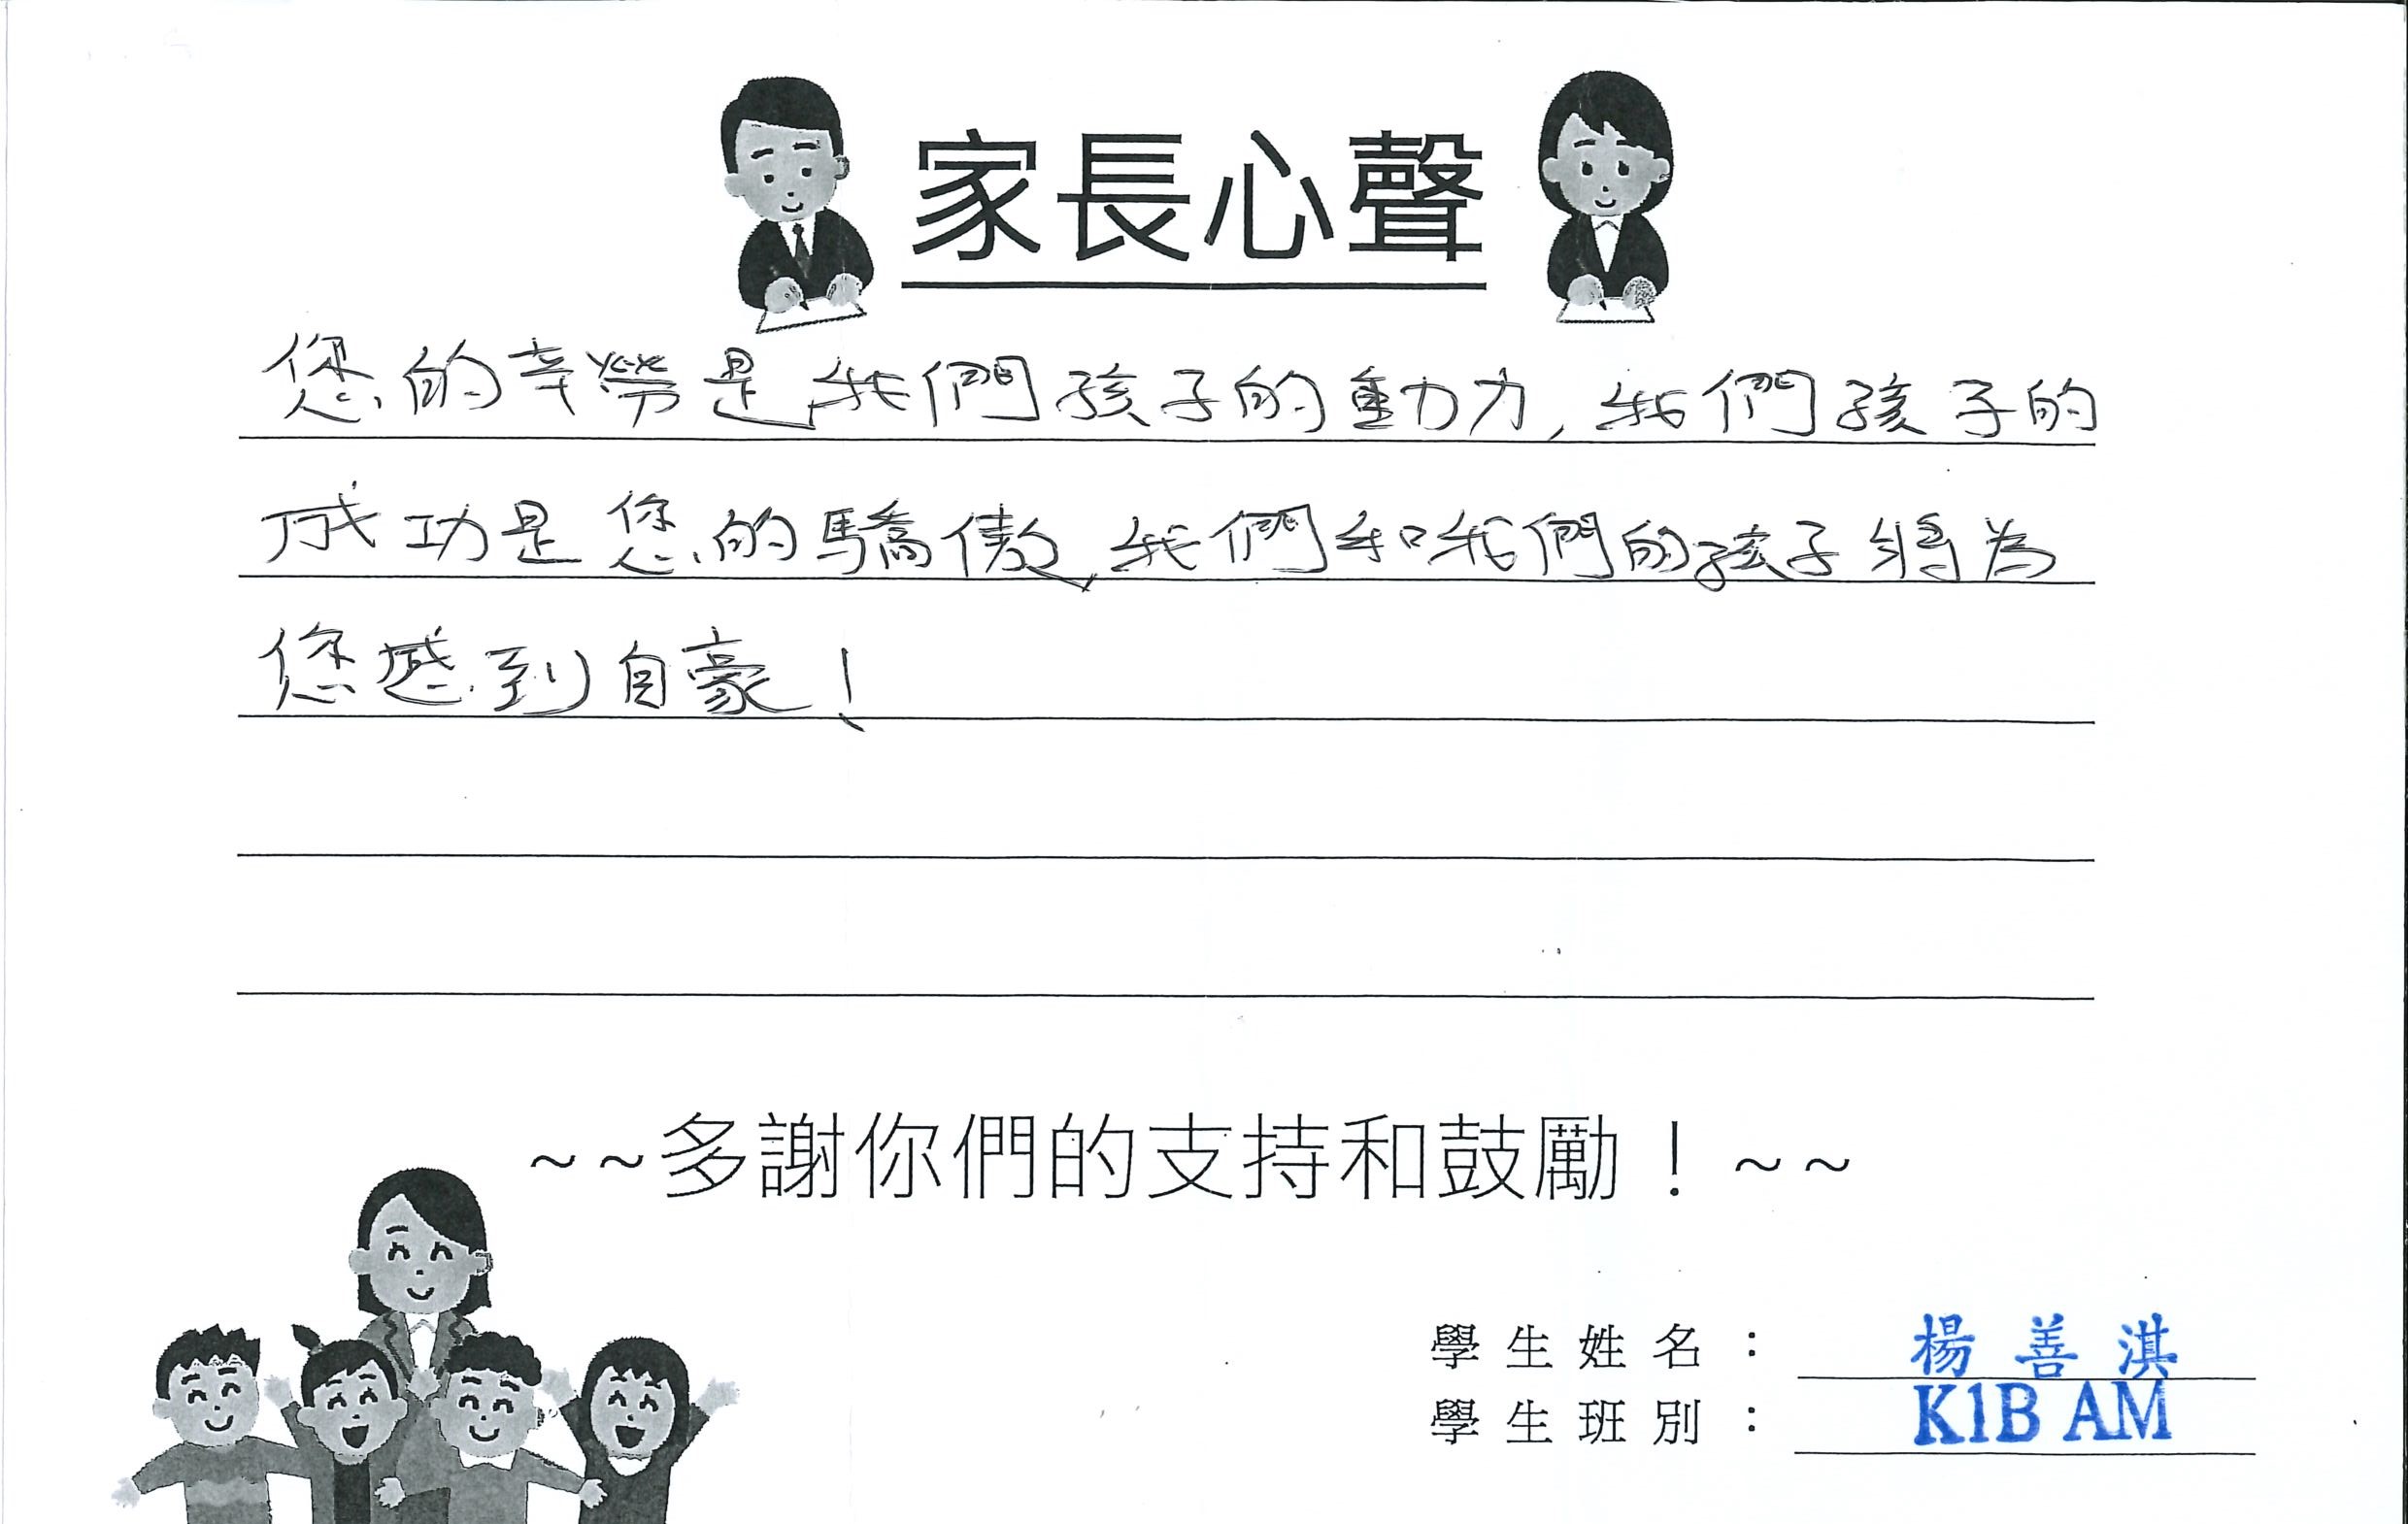 家長心聲
您的辛勞是我們孩子的動力,我們孩子的
成功是您的驕傲,我們和我們的孩子將為
您感到自豪!
~~多謝你們的支持和鼓勵!~~
學生姓名: 楊善淇
學生班別: K1B AM